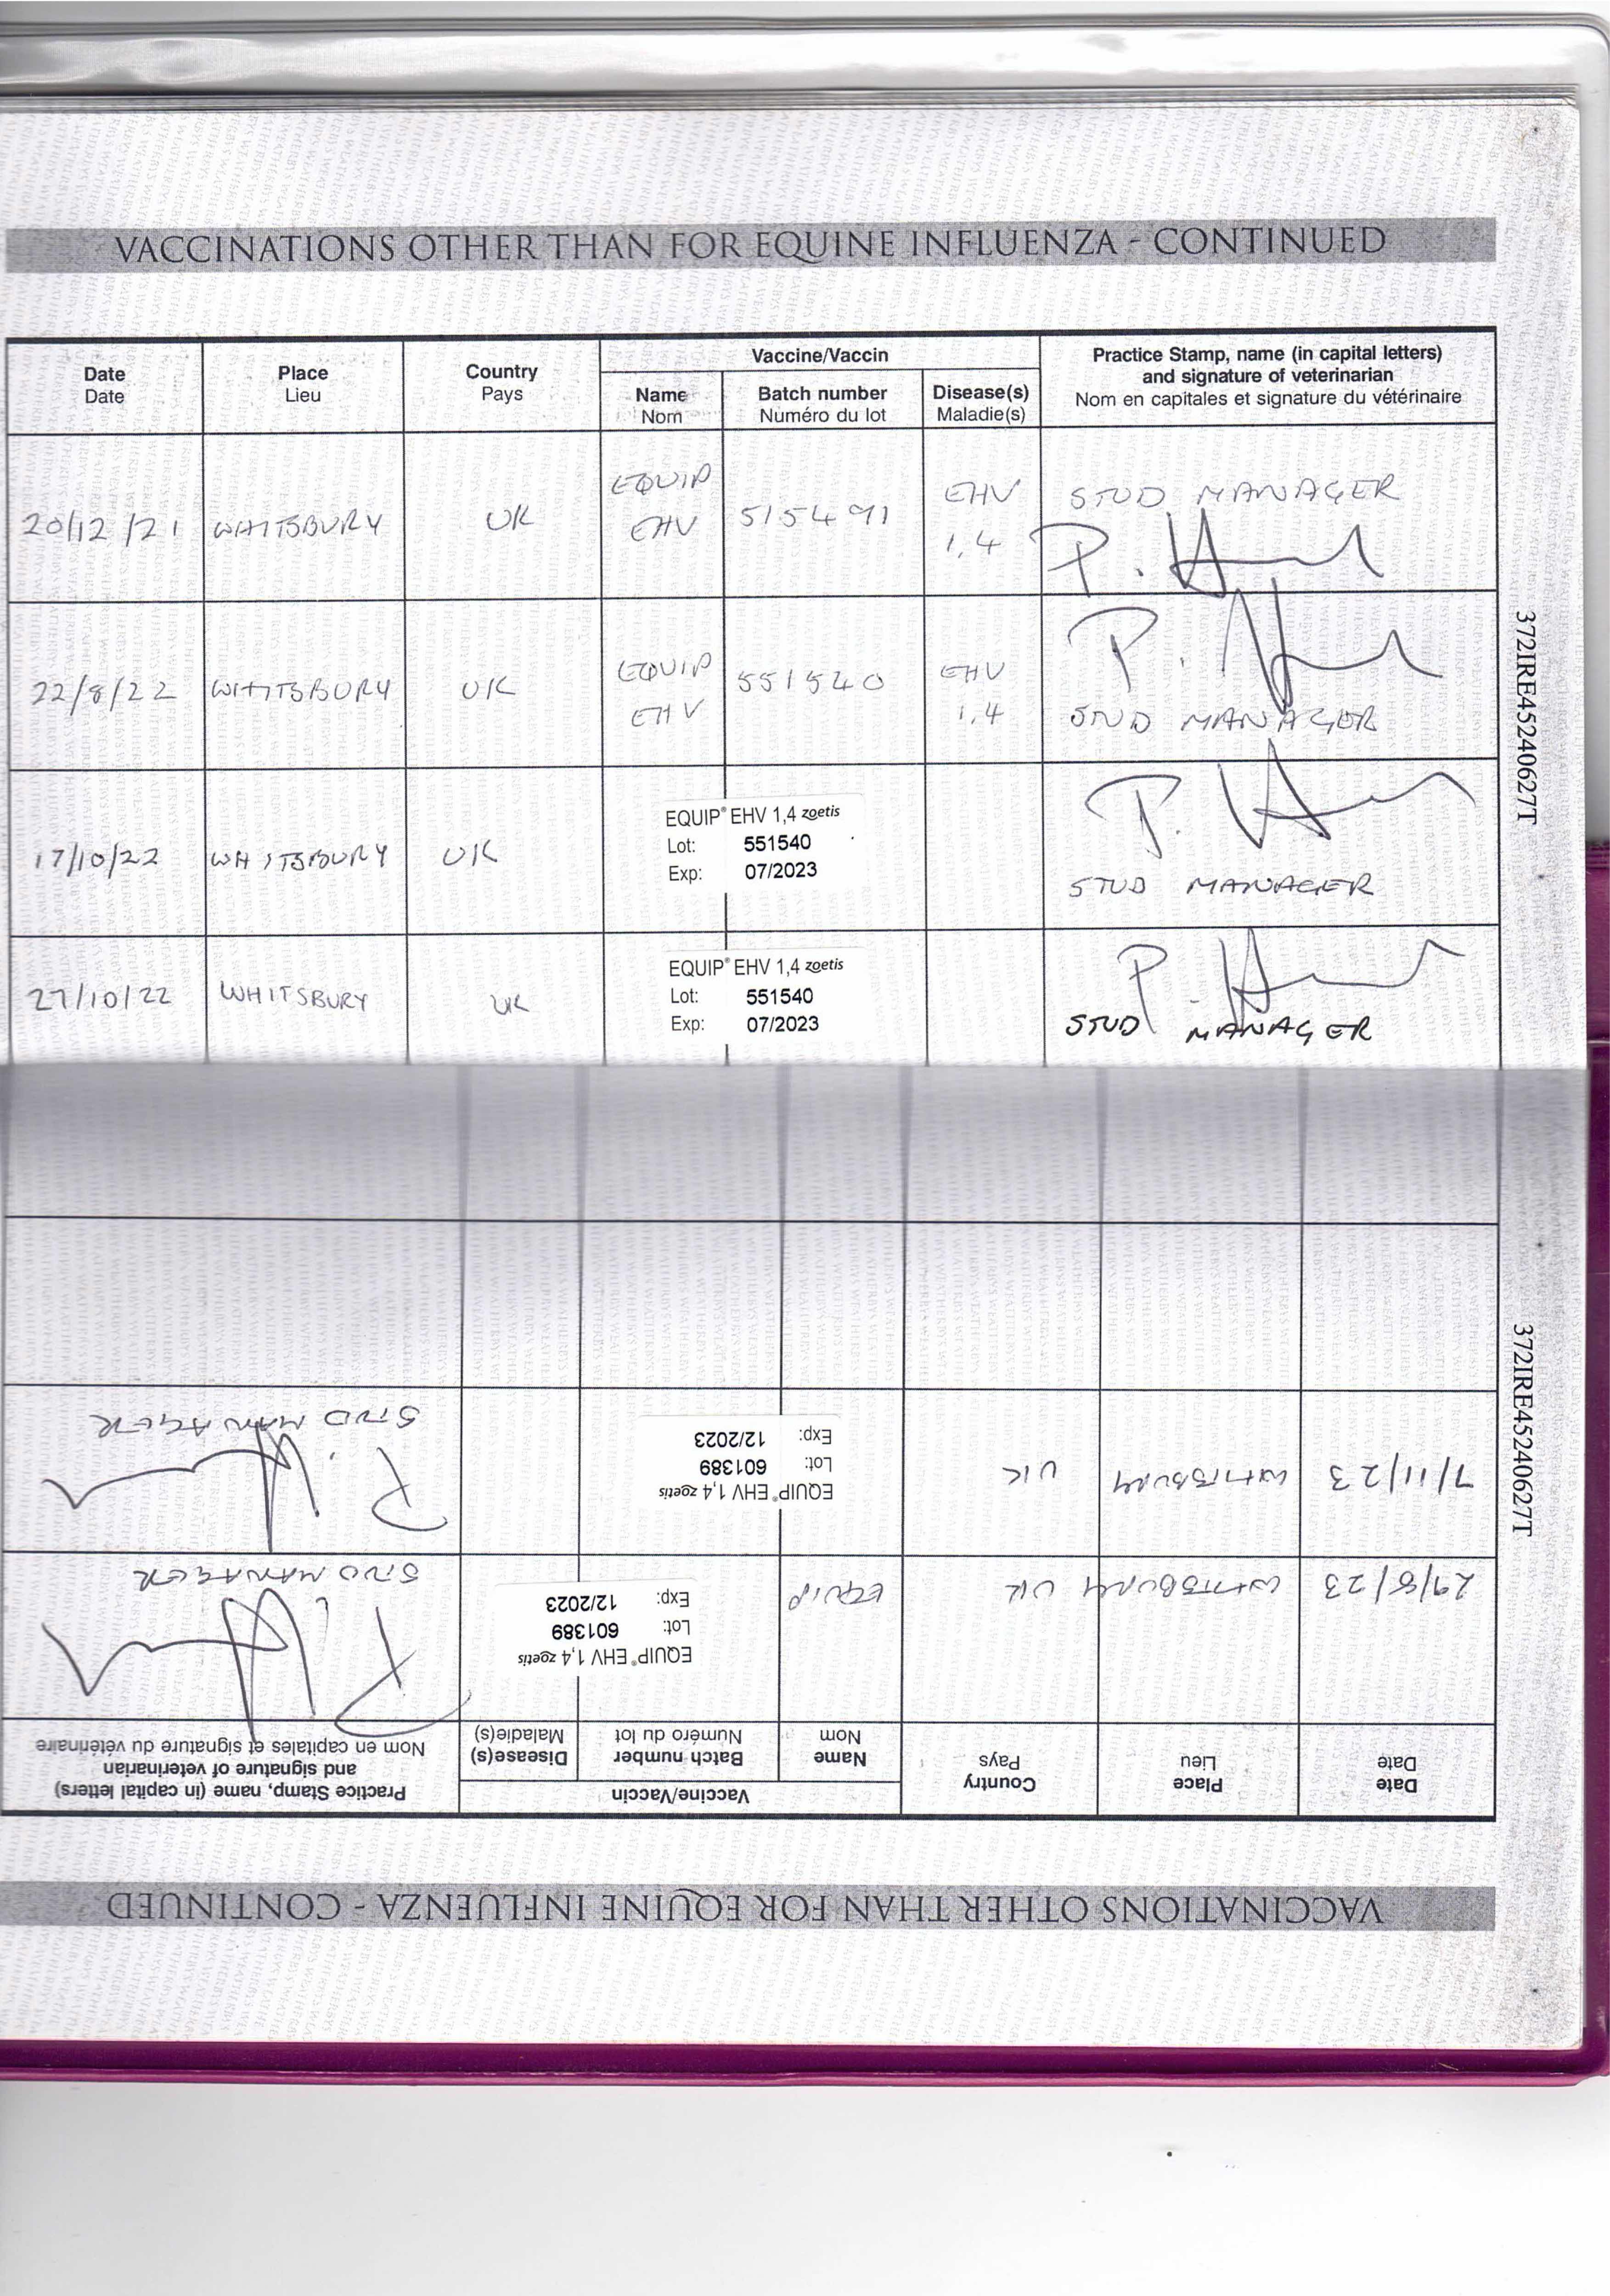 VACCINATIONS OTHER THAN FOR EQUINE INFLUENZA - CONTINUED
Date
Date
Place
Lieu
Country
Pays
Vaccine/Vaccin
Name
Nom
Batch number
Numéro du lot
Disease(s)
Maladie(s)
Practice Stamp, name (in capital letters)
and signature of veterinarian
Nom en capitales et signature du vétérinaire
20/12/21 WHITSBURY UK
EQUIP
EHV
515491
EHV
1,4
STUD MANAGER
22/8/22 WHITSBURY UK
EQUIP
EHV
551540
EHV
1,4
STUD MANAGER
17/10/22 WHITSBURY UK
EQUIP® EHV 1,4 zoetis
Lot: 551540
Exp: 07/2023
STUD MANAGER
27/10/22 WHITSBURY UK
EQUIP® EHV 1,4 zoetis
Lot: 551540
Exp: 07/2023
STUD MANAGER
372IRE45240627T
VACCINATIONS OTHER THAN FOR EQUINE INFLUENZA - CONTINUED
Date
Date
Place
Lieu
Country
Pays
Vaccine/Vaccin
Name
Nom
Batch number
Numéro du lot
Disease(s)
Maladie(s)
Practice Stamp, name (in capital letters)
and signature of veterinarian
Nom en capitales et signature du vétérinaire
29/8/23 WHITSBURY UK
EQUIP
EQUIP® EHV 1,4 zoetis
Lot: 601389
Exp: 12/2023
STUD MANAGER
7/11/23 WHITSBURY UK
EQUIP® EHV 1,4 zoetis
Lot: 601389
Exp: 12/2023
STUD MANAGER
372IRE45240627T